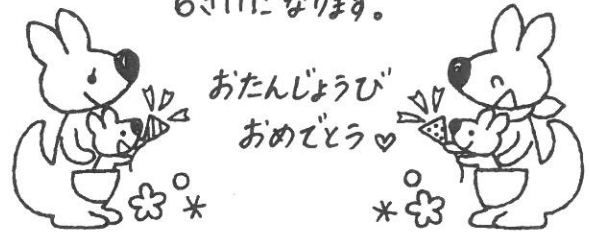 6さいに なります。
おたんじょうび
おめでとう♡